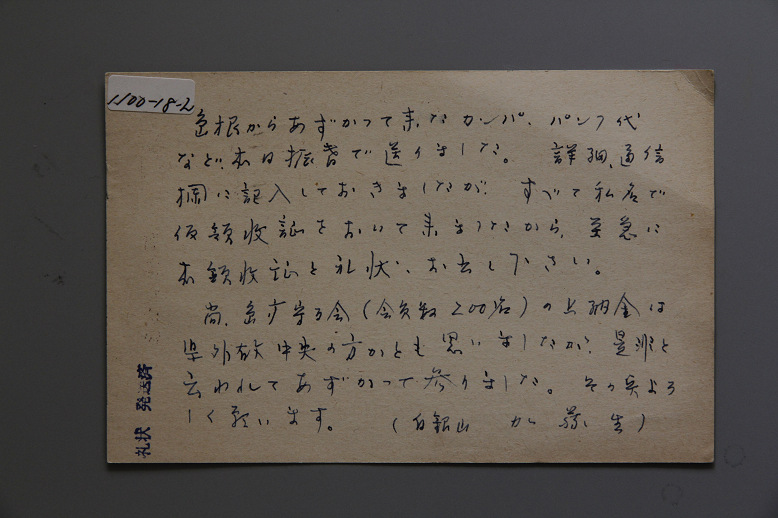 1100-18-2
島根からあずかって来たカンパ、パンフ代
など、本日振替で送りました。 詳細、通信
欄に記入しておきましたが、すべて私名で
仮領収証をおいて来ましたから、至急に
本領収証と礼状、お出し下さい。
尚、 守る会(会員数200名)の上納金は
県外故中央の方かとも思いましたが、是非と
云われてあずかって参りました。その点よろ
しく願います。 (白銀山 生)
礼状 発送済